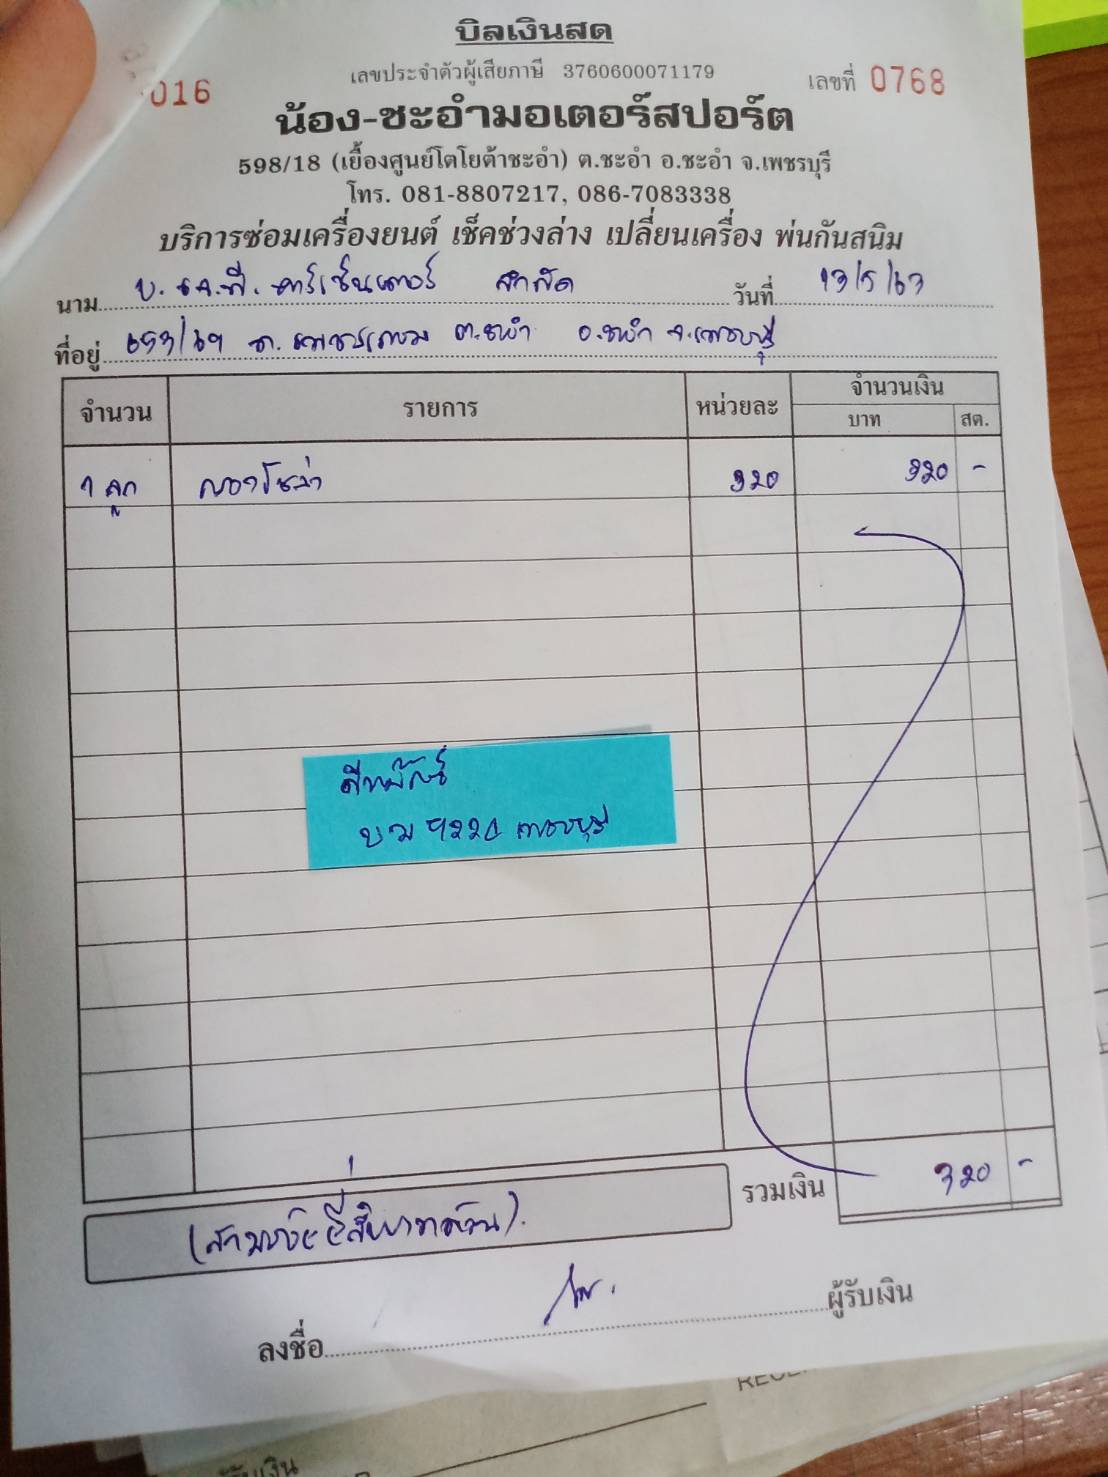 บิลเงินสด
เลขประจำตัวผู้เสียภาษี 3760600071179
016
เลขที่ 0768
น้อง-ชะอำมอเตอร์สปอร์ต
598/18 (เยื้องศูนย์โตโยต้าชะอำ) ต.ชะอำ อ.ชะอำ จ.เพชรบุรี
โทร. 081-8807217, 086-7083338
บริการซ่อมเครื่องยนต์ เช็คช่วงล่าง เปลี่ยนเครื่อง พ่นกันสนิม
นาม บ. คาร์เซ็นเตอร์ จำกัด วันที่ 13/5/63
ที่อยู่ ถ. เพชรเกษม ต.ชะอำ อ.ชะอำ จ.เพชรบุรี
จำนวน รายการ หน่วยละ จำนวนเงิน
บาท สต.
1 ลูก กรองโซล่า 320 320 -
บม 9220 เพชรบุรี
รวมเงิน 320 -
(สามร้อยยี่สิบบาทถ้วน).
ลงชื่อ ผู้รับเงิน